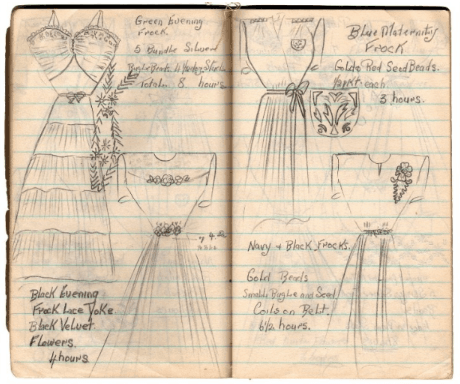 Green Evening
Frock.
5 Bundle Silver
Bugle Beads
Total = 8 hours
Black Evening
Frock Lace Yoke
Black Velvet
Flowers.
4 hours.
Blue Maternity
Frock
Gold & Red Seed Beads.
each
3 hours.
Navy & Black Frocks.
Gold Beads
Small Bugle and Seed
Coils on Belt.
6½ hours.